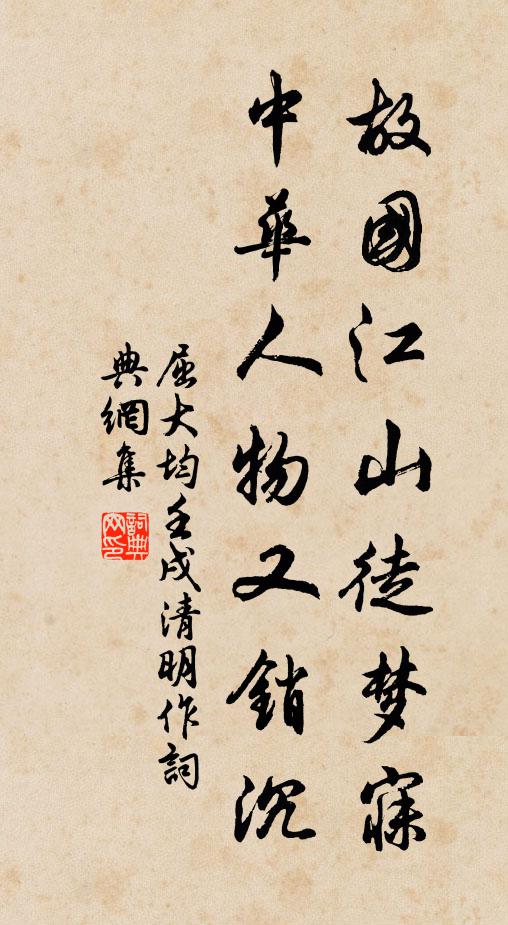 故國江山徒梦寐
中華人物又銷沉
屈大均壬戌清明作詞
典網集
詞典网印